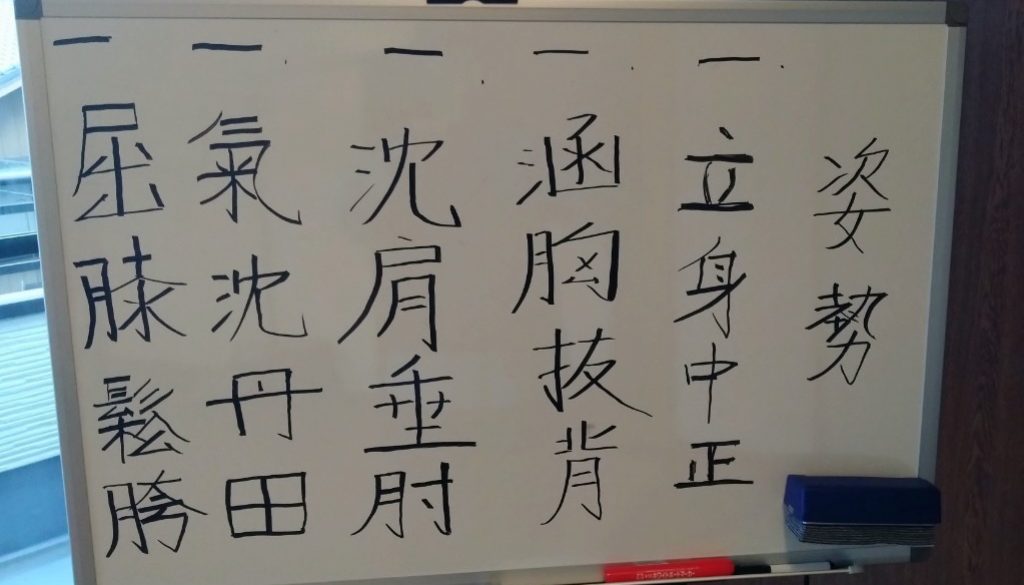 姿勢
一 立身中正
一 涵胸抜背
一 沈肩垂肘
一 氣沈丹田
一 屈膝鬆胯